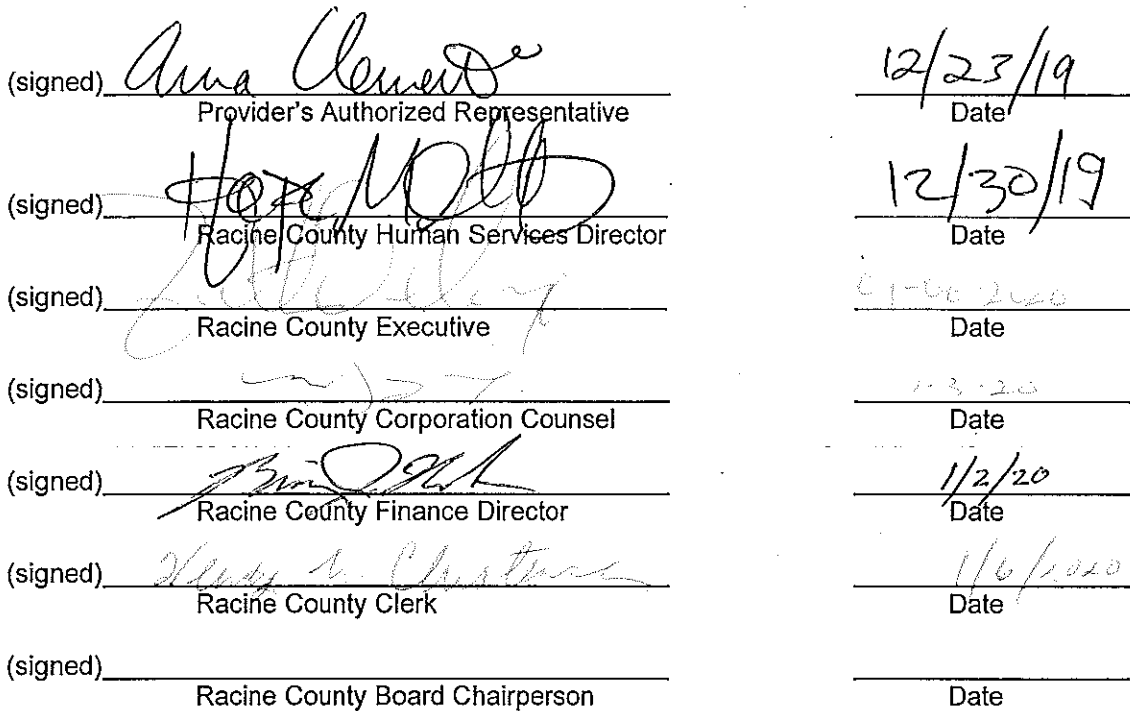 (signed) Anna Clemente 12/23/19
Provider's Authorized Representative Date
(signed) Hope Otto 12/30/19
Racine County Human Services Director Date
(signed)
Racine County Executive Date
(signed) 1-3-20
Racine County Corporation Counsel Date
(signed) 1/2/20
Racine County Finance Director Date
(signed) 1/6/2020
Racine County Clerk Date
(signed)
Racine County Board Chairperson Date